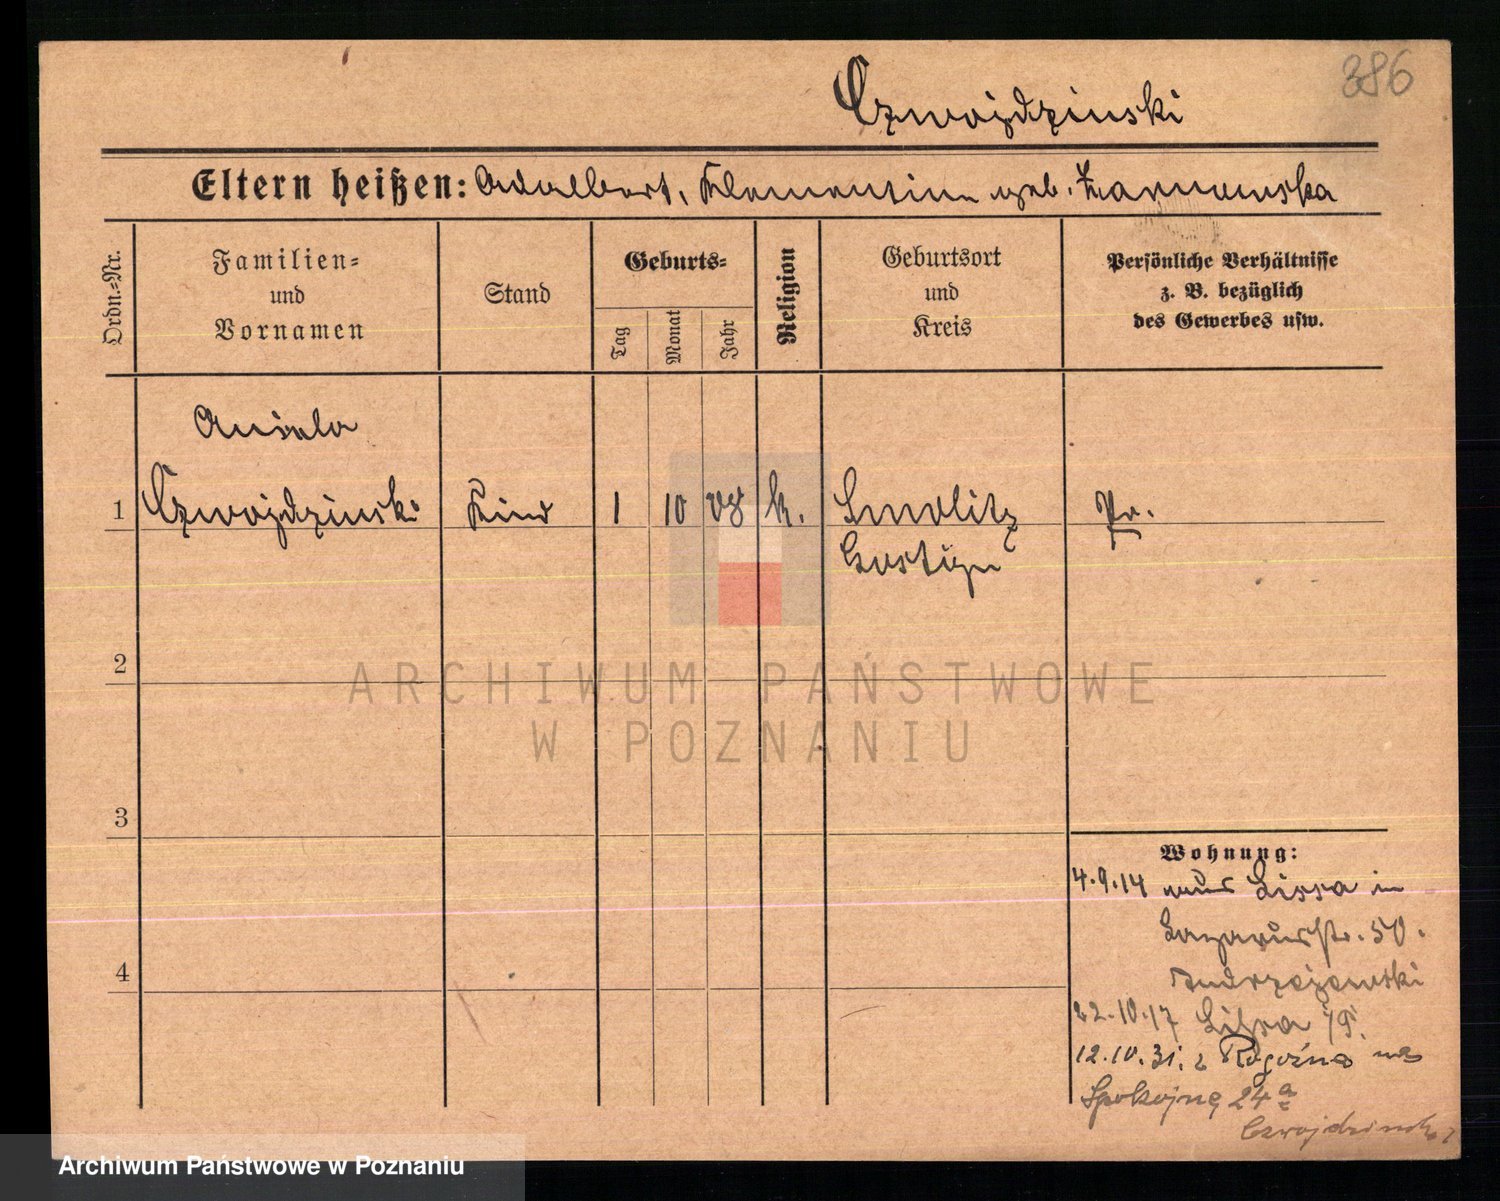 386
Czwojdzinski
Eltern heißen: Adalbert, Klementine geb. Zarnowska
Ordn.=Nr.
Familien=
und
Vornamen
Stand
Geburts=
Tag
Monat
Jahr
Religion
Geburtsort
und
Kreis
Persönliche Verhältnisse
z. B. bezüglich
des Gewerbes usw.
Aniela
1 Czwojdzinski Kind 1 10 08 k. Smolitz Pr.
Gostyn
2
ARCHIWUM PAŃSTWOWE
W POZNANIU
3
Wohnung:
4.9.14 aus Lissa in
Lazarusstr. 50.
Andrzejewski
22.10.17 Lissa i/P.
12.10.31. z Rogoźna na
Spokojną 24a
Czwojdzinski
4
Archiwum Państwowe w Poznaniu